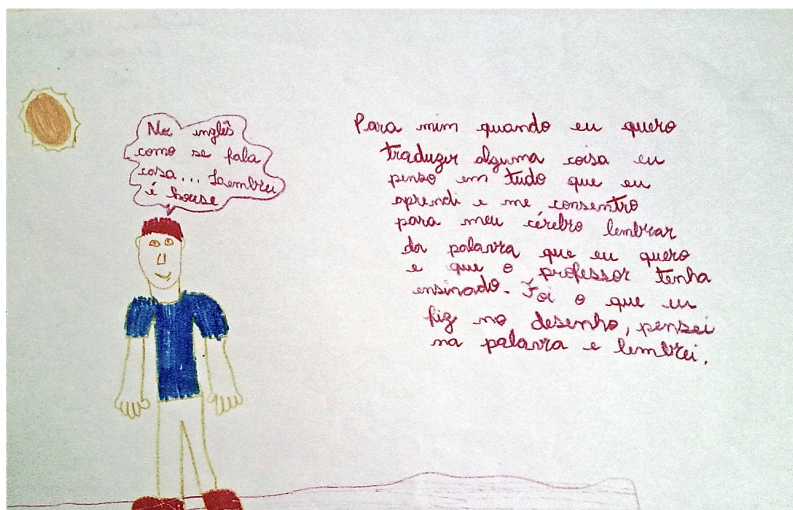 No inglês
como se fala
casa... Já lembrei
é house
Para mim quando eu quero
traduzir alguma coisa eu
penso em tudo que eu
aprendi e me consentro
para meu cérebro lembrar
da palavra que eu quero
e que o professor tenha
ensinado. Foi o que eu
fiz no desenho, pensei
na palavra e lembrei.